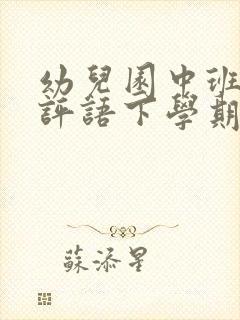 幼兒園中班
評語下學期
蘇添星